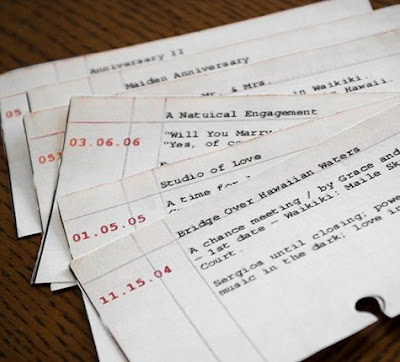 Anniversary II
05
Maiden Anniversary
Mr. & Mrs.
in Waikiki.
in Hawaii.
05
03.06.06
A Natuical Engagement
"Will You Marry
"Yes, of co
Studio of love
A time for
01.05.05
Bridge Over Hawaiian Waters
A chance meeting / by Grace and
- 1st date - Waikiki: Maile Sk
Court.
11.15.04
Sergios until closing; powe
music in the dark; love in